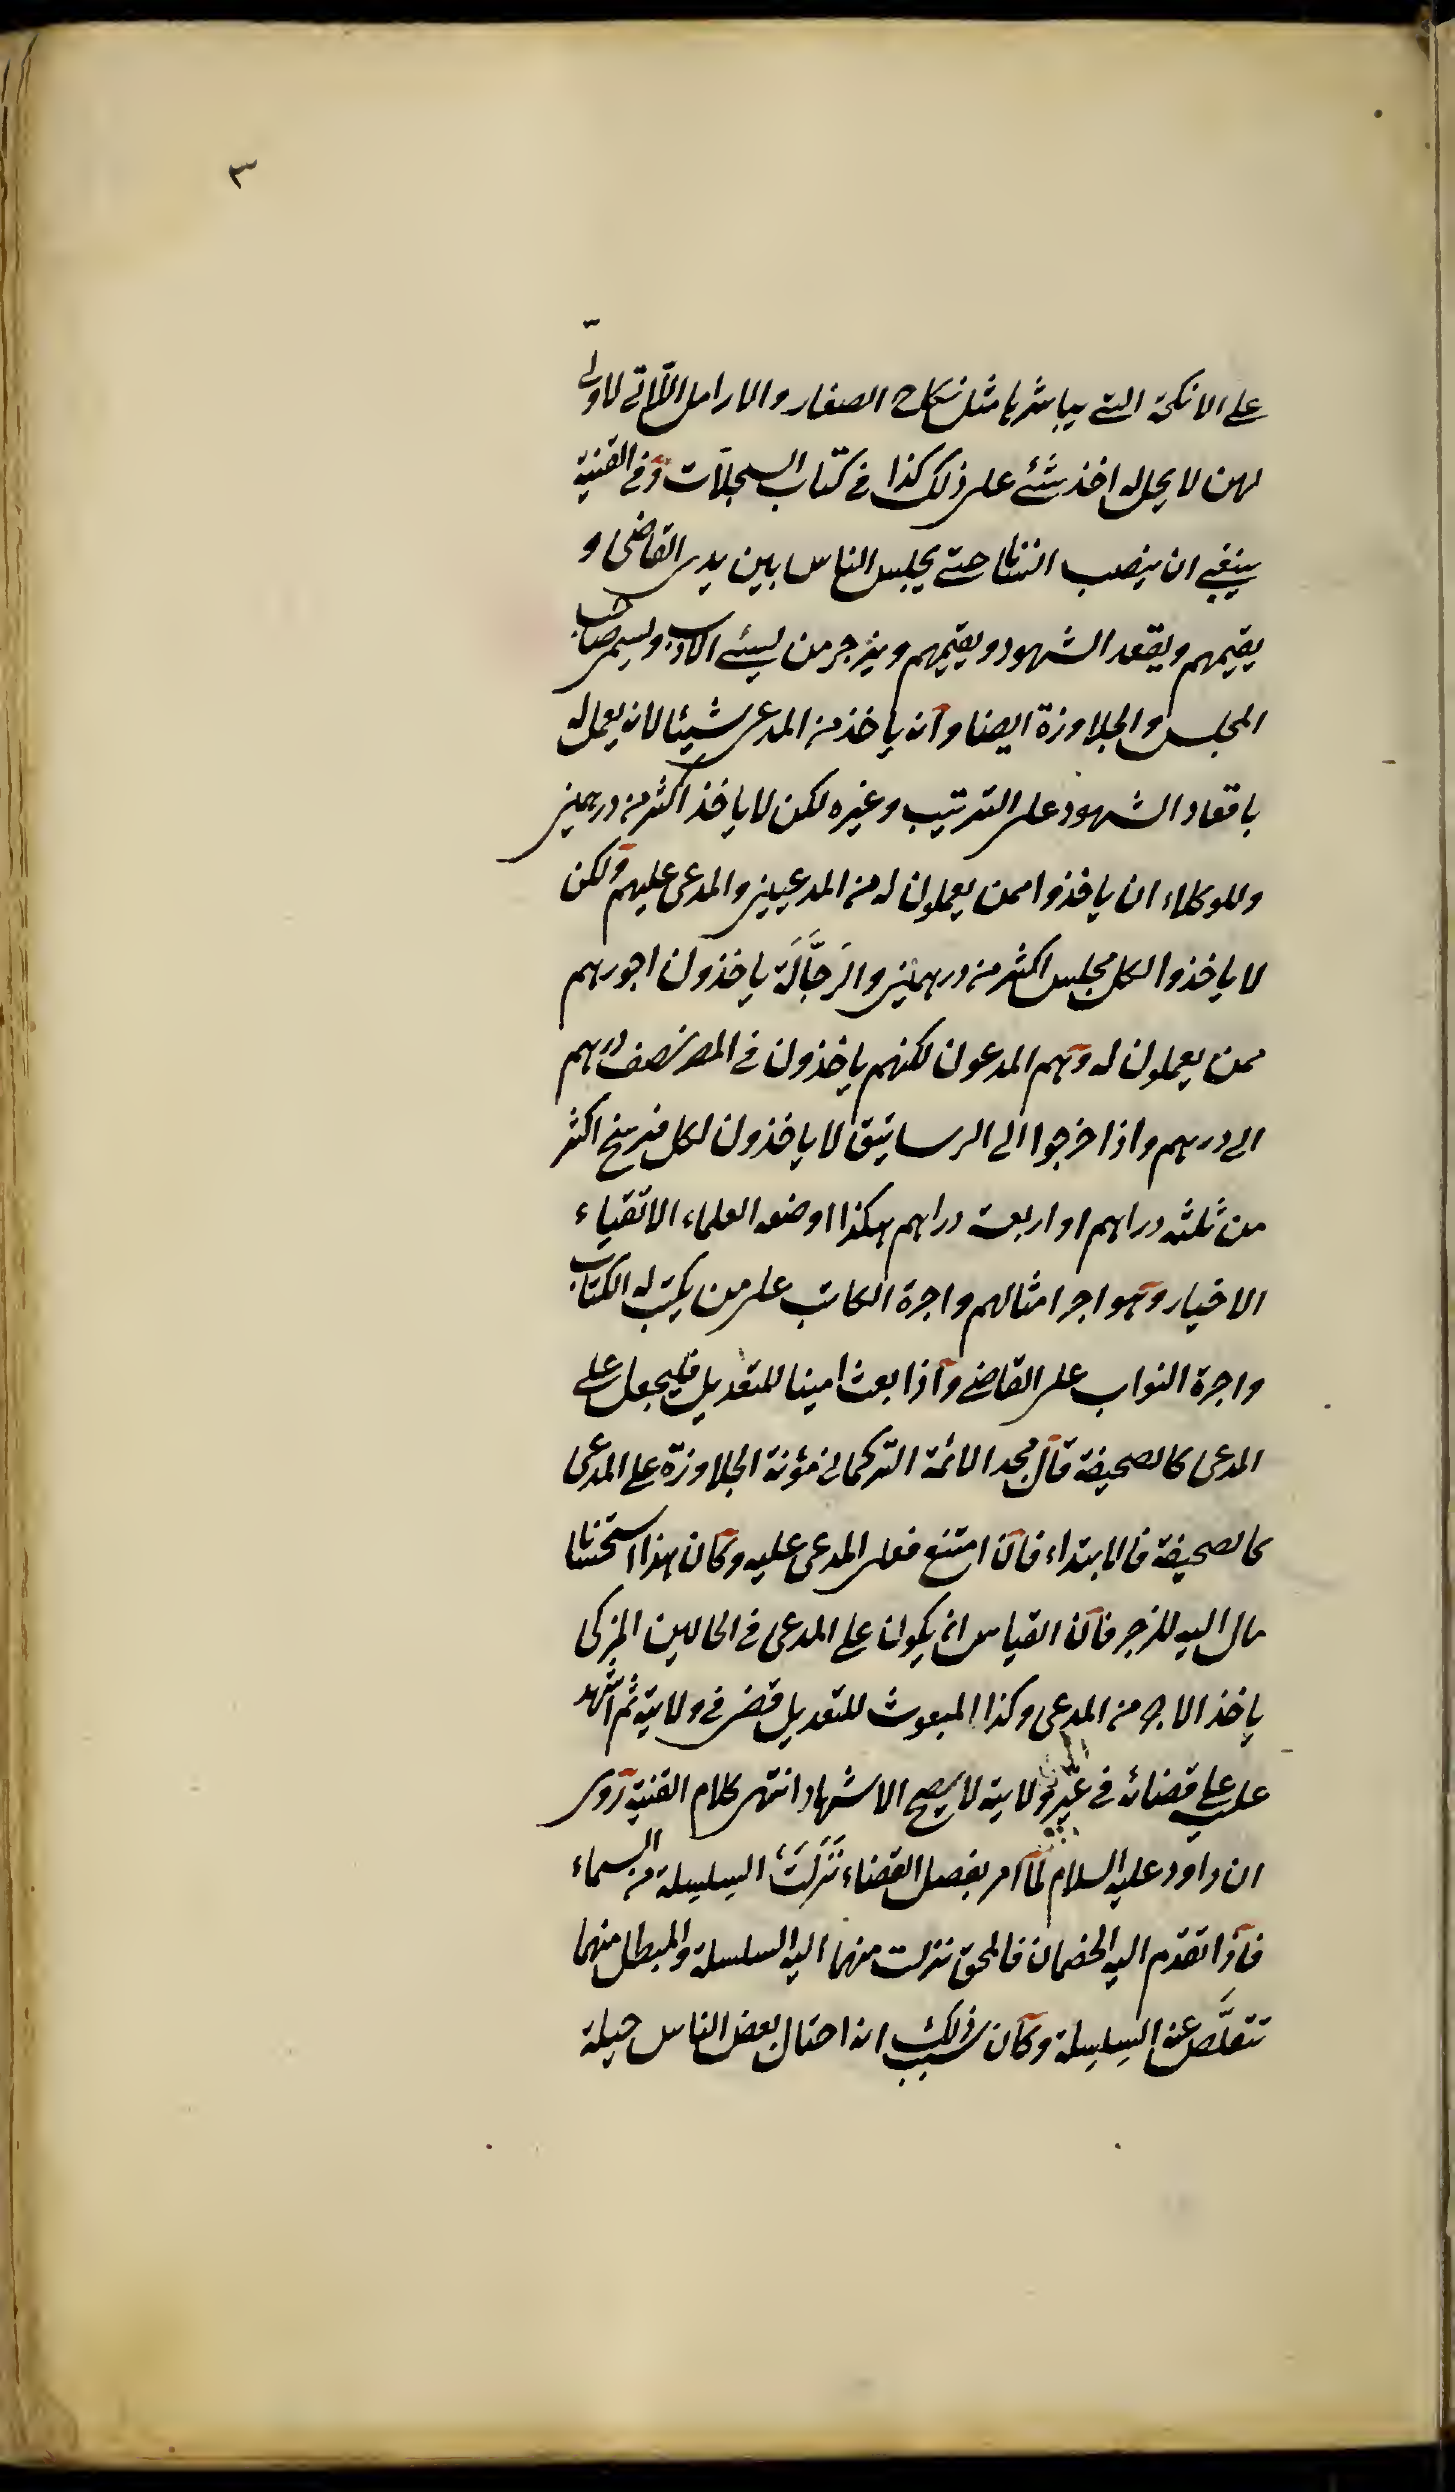 ٣
على الانكحة التي يباشرها مثل نكاح الصغار والارامل اللاتي لا ولي
لهن لا يحل له اخذ شئ على ذلك كذا في كتاب السجلات وفي القنية
ينبغي ان ينصب انسانا حتى يجلس الناس بين يدي القاضي و
يقيمهم ويقعد الشهود ويقيمهم ويزجر من يسئ الادب ويسمى صاحب
المجلس والجلاوزة ايضا وانه ياخذ من المدعي شيئا لانه يعمل له
باقعاد الشهود على الترتيب وغيره لكن لا ياخذ اكثر من درهمين
وللوكلاء ان ياخذوا ممن يعملون له من المدعيين والمدعى عليهم ولكن
لا ياخذوا لكل مجلس اكثر من درهمين والرَجَّالَة ياخذون اجورهم
ممن يعملون له وهم المدعون لكنهم ياخذون في المصر نصف درهم
الى درهم واذا خرجوا الى الرساتيق لا ياخذون لكل فرسخ اكثر
من ثلثه دراهم او اربعة دراهم هكذا اوضعه العلماء الاتقياء
الاخيار وهو اجر امثالهم واجرة الكاتب على من يكتب له الكتاب
واجرة النواب على القاضي واذا بعث امينا للتعديل فليجعل على
المدعي كالصحيفة قال مجد الائمة التركماني مؤنة الجلاوزة على المدعي
كالصحيفة في الابتداء فان امتنع فعلى المدعى عليه وكان هذا استحسانا
مال اليه للزجر فان القياس ان يكون على المدعي في الحالين المزكي
ياخذ الاجر من المدعي وكذا المبعوث للتعديل قضى في ولايته ثم اشهد
على قضائه في غير ولايته لا يصح الاشهاد انتهى كلام القنية روى
ان داود عليه السلام لما امر بفصل القضاء نَزَلَتْ السلسلة من السماء
فاذا تقدم اليه الخصمان فالمحق نزلت منهما اليه السلسلة والمبطل منهما
تتقلَّص عنه السلسلة وكان سبب ذلك انه احتال بعض الناس حيلة